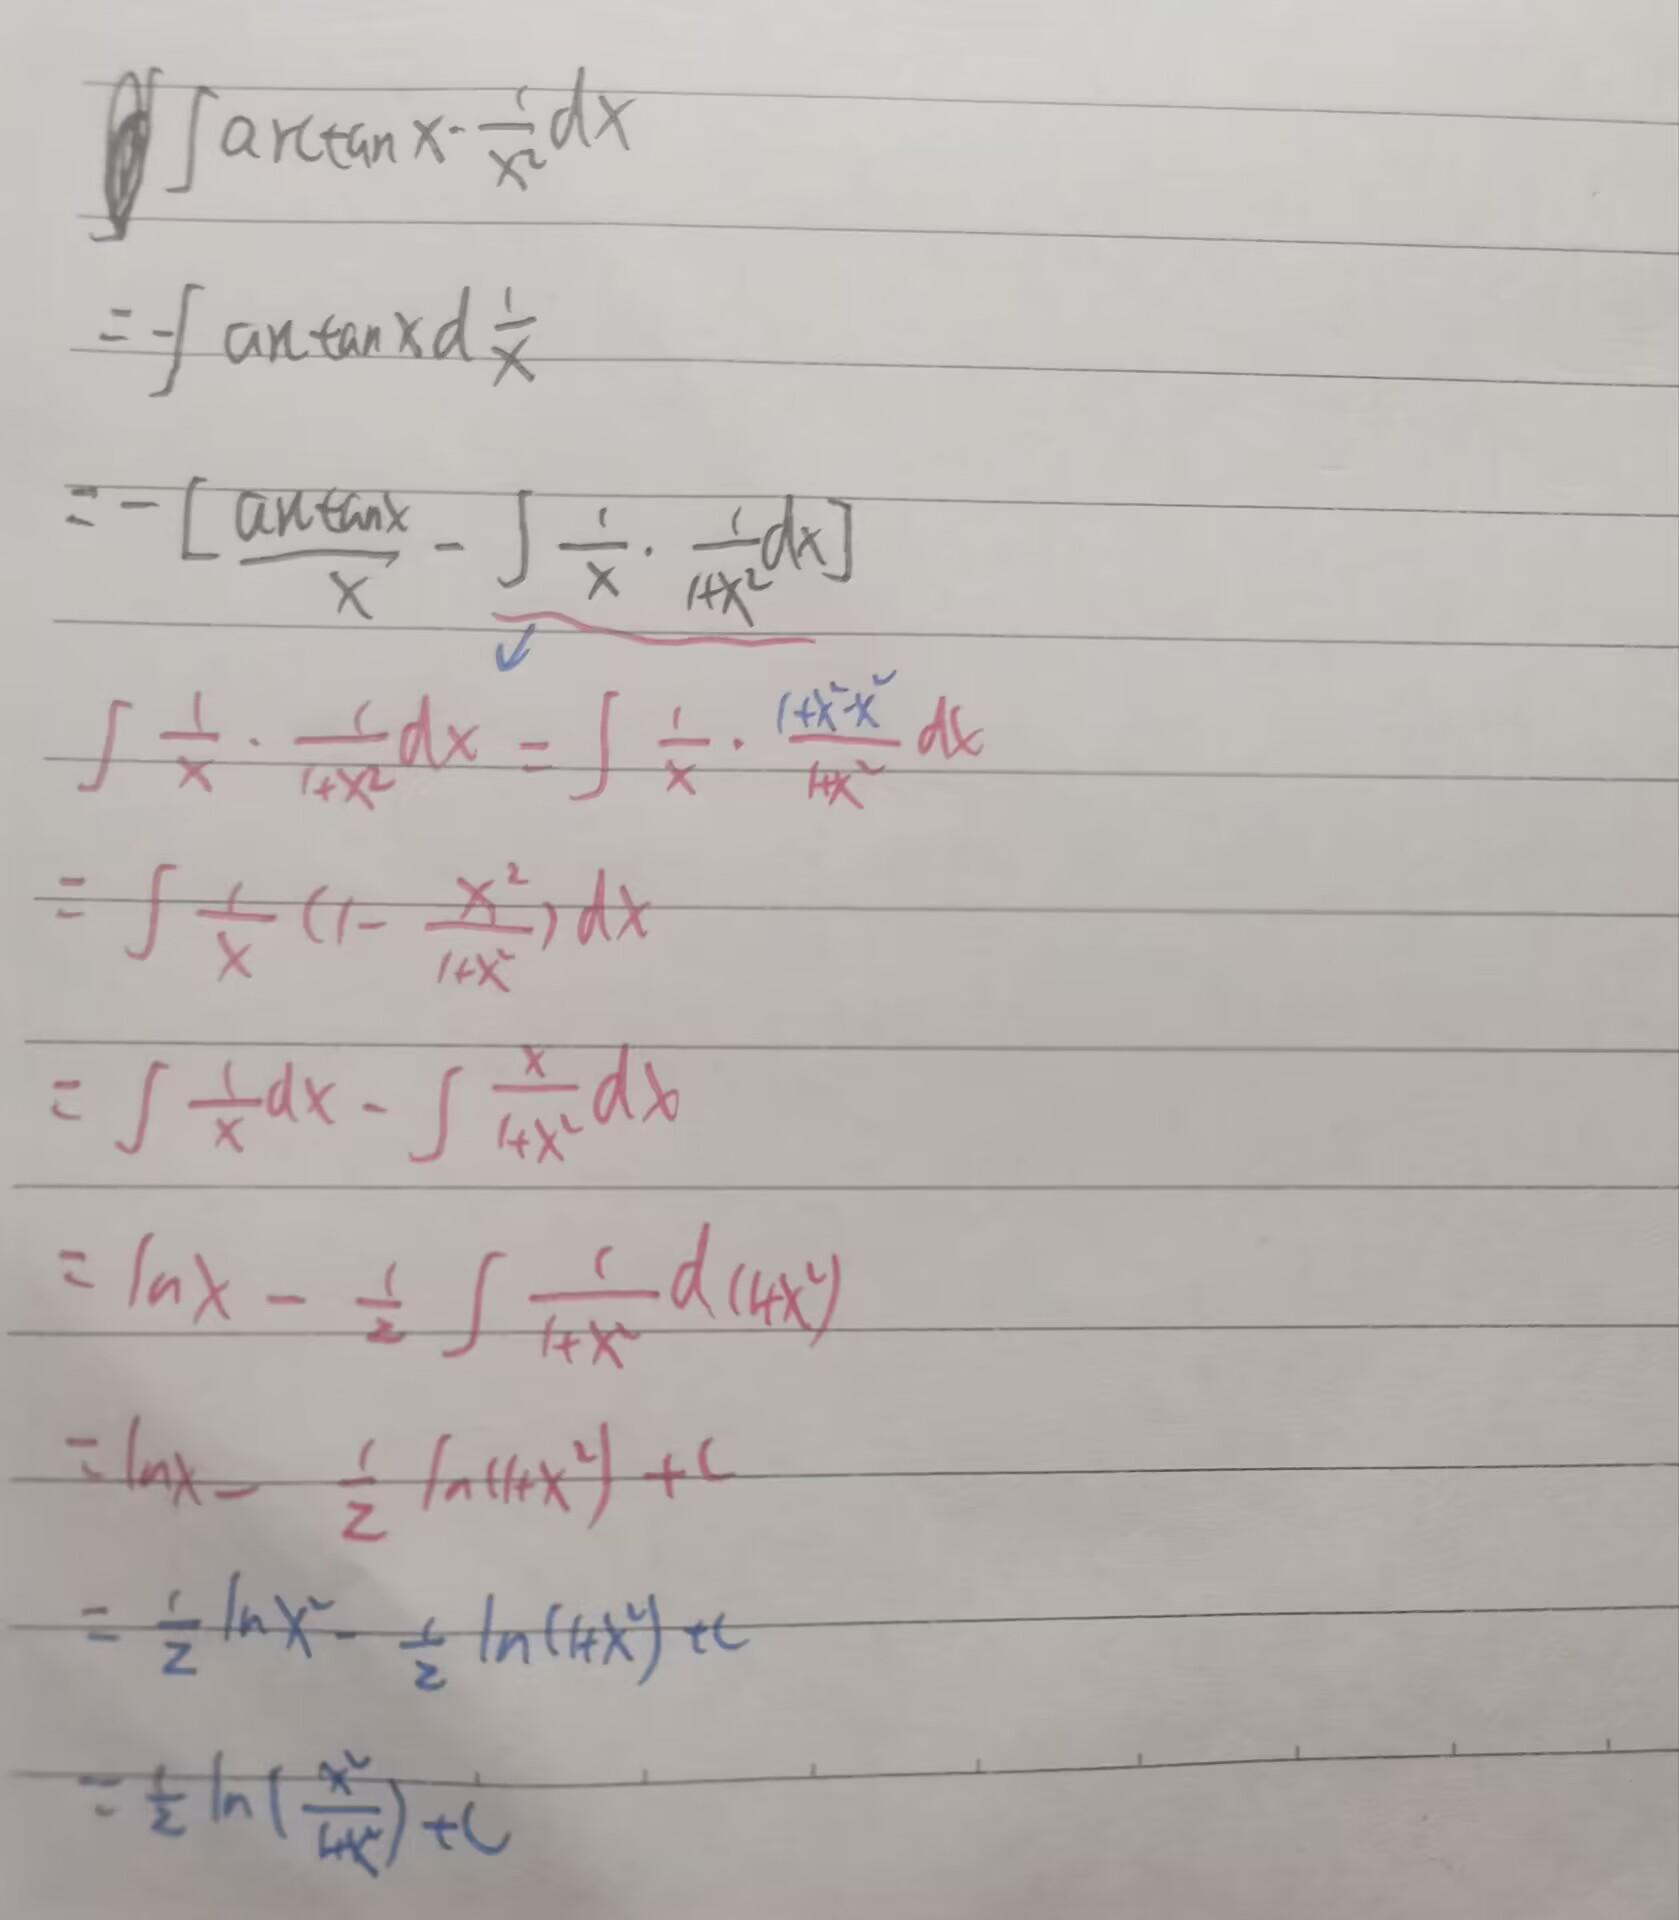 ∫ arctan x · 1/x² dx
= -∫ arctan x d 1/x
= - [ arctan x / x - ∫ 1/x · 1/(1+x²) dx ]
∫ 1/x · 1/(1+x²) dx = ∫ 1/x · (1+x²-x²)/(1+x²) dx
= ∫ 1/x (1 - x²/(1+x²)) dx
= ∫ 1/x dx - ∫ x/(1+x²) dx
= ln x - 1/2 ∫ 1/(1+x²) d(1+x²)
= ln x - 1/2 ln(1+x²) + C
= 1/2 ln x² - 1/2 ln(1+x²) + C
= 1/2 ln( x²/(1+x²) ) + C